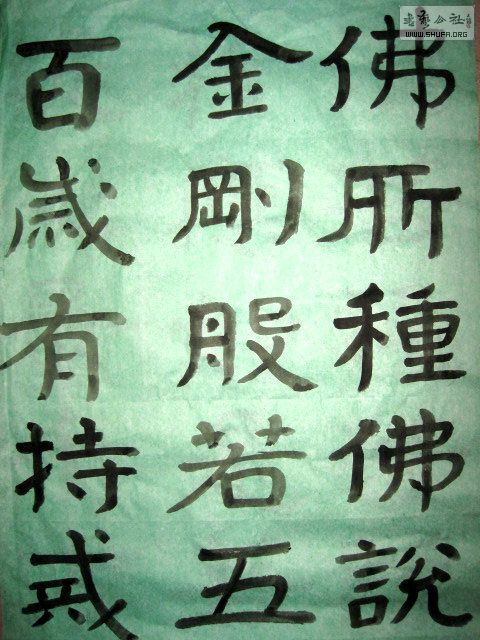 佛所種佛說
金剛般若五
百歲有持戒
書藝公社
WWW.SHUFA.ORG